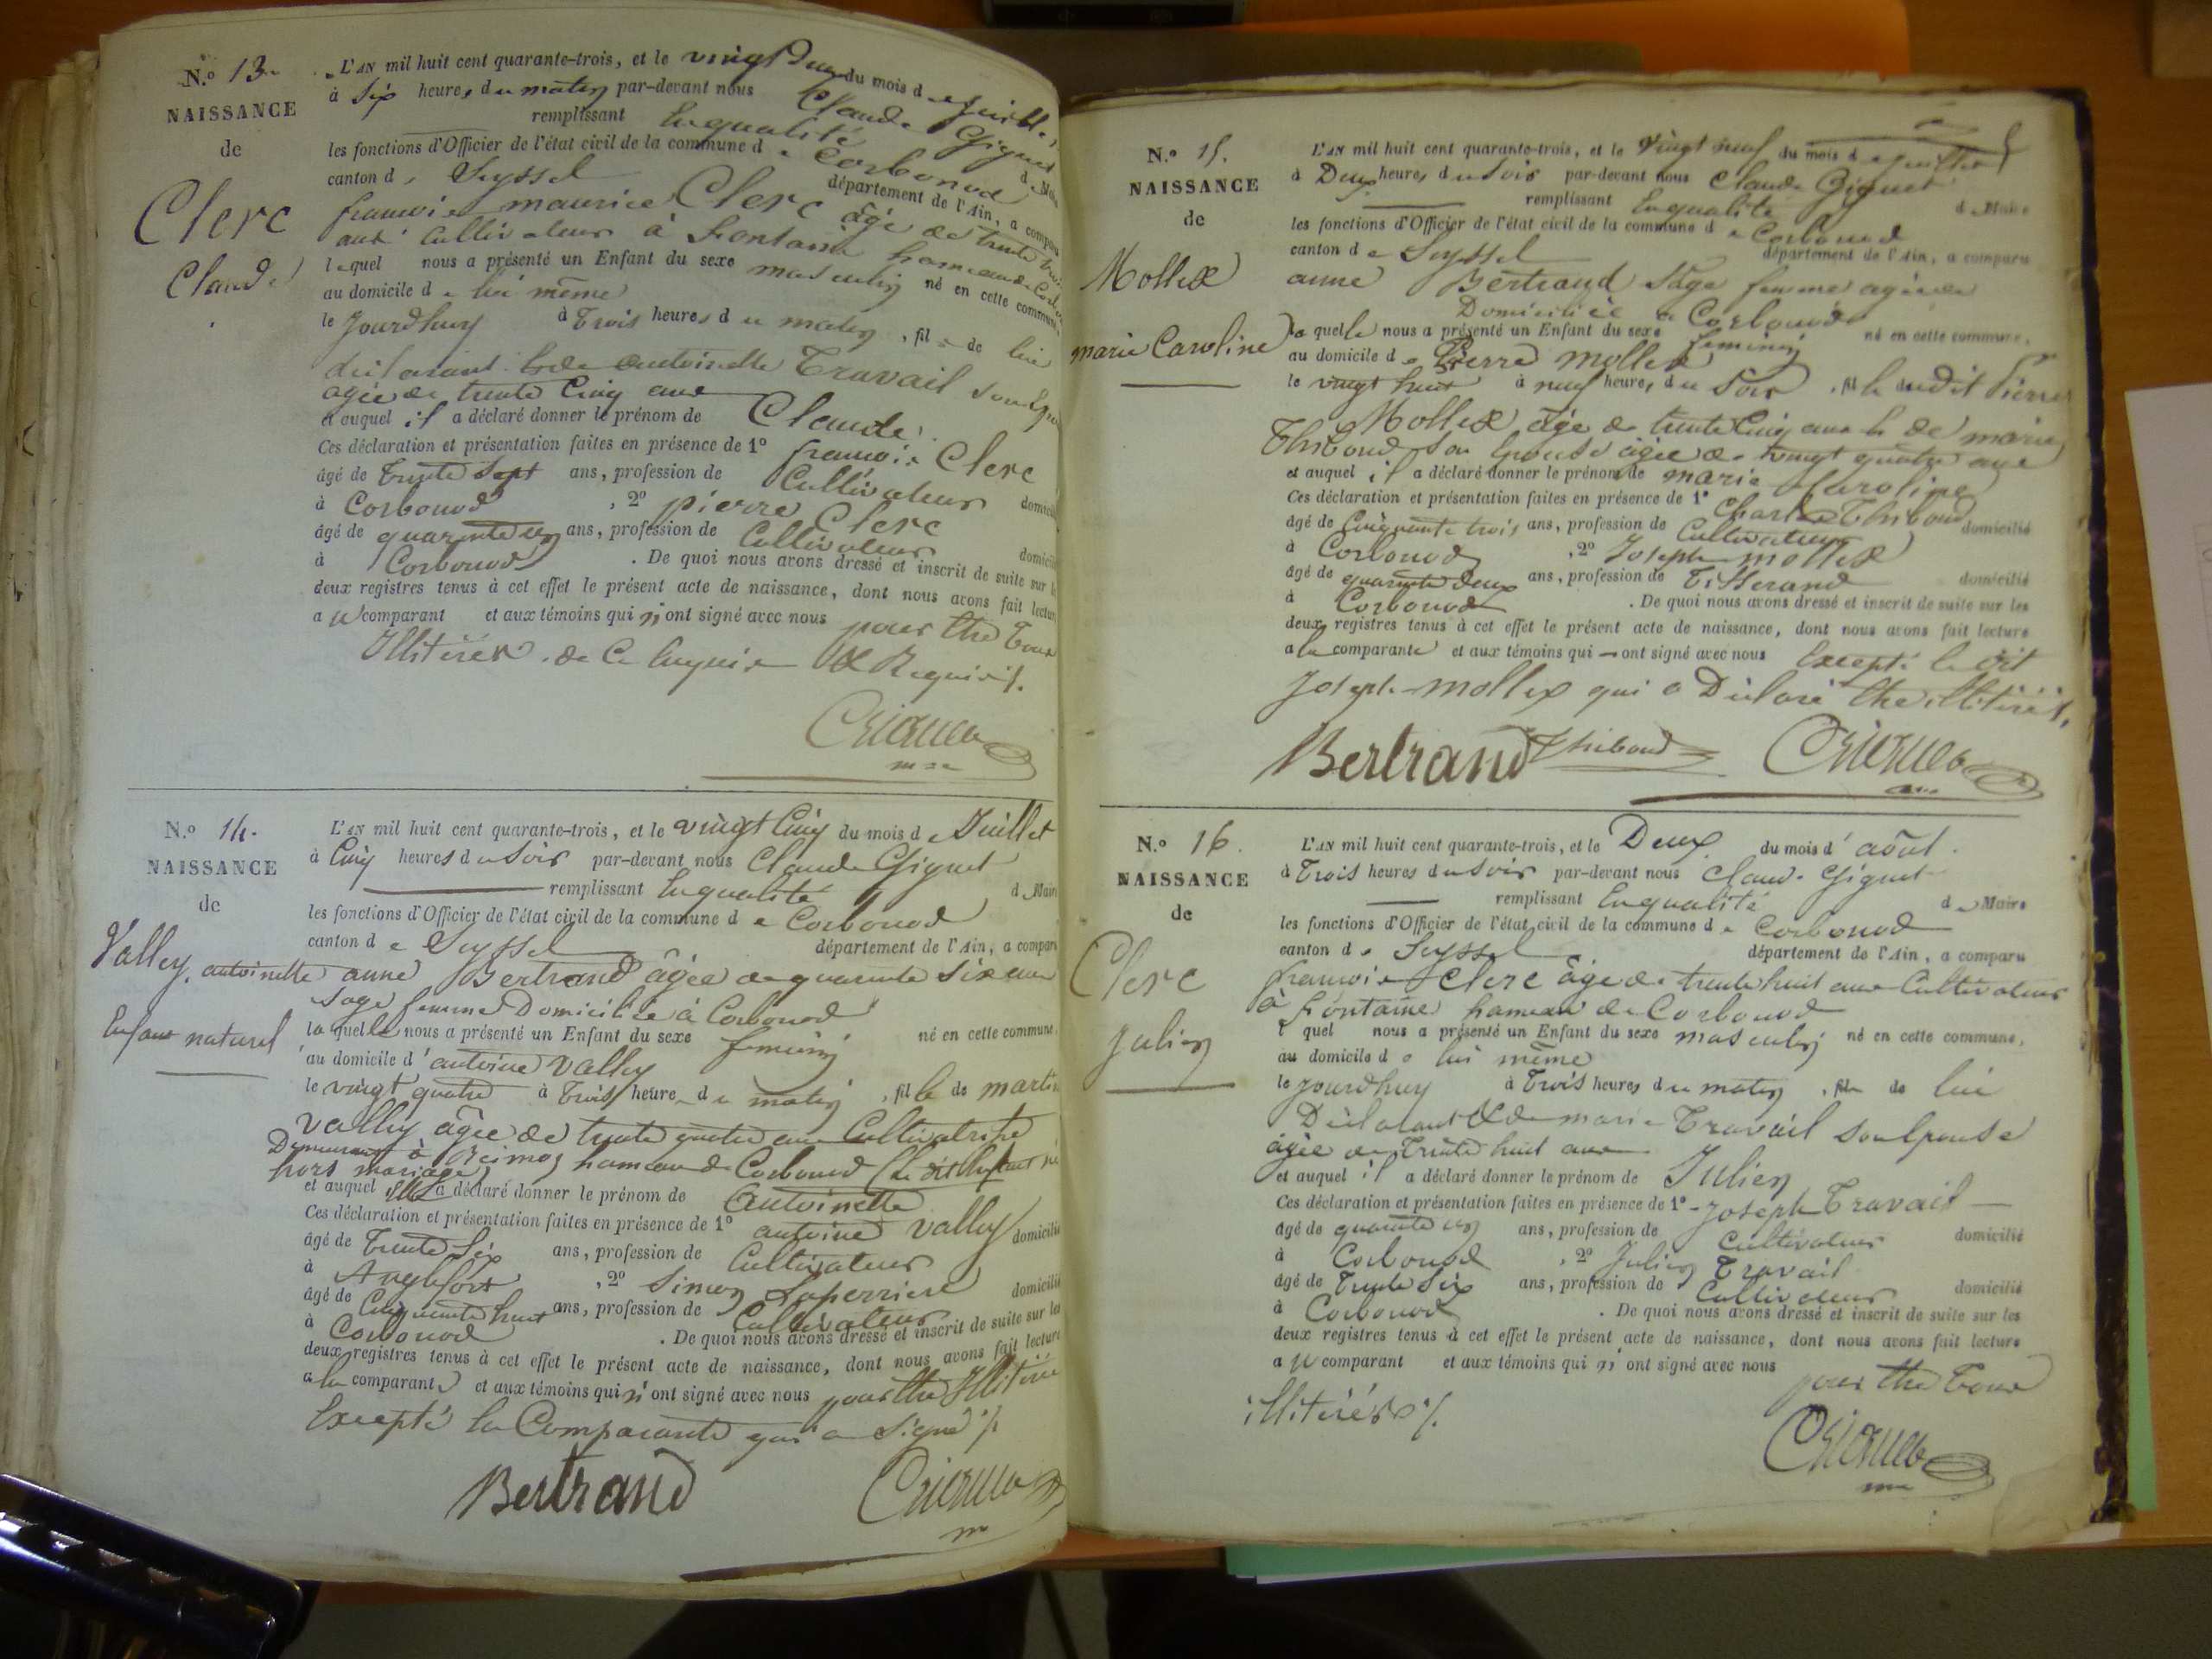 N.º 13.
NAISSANCE
de
Clerc
Claude
L'AN mil huit cent quarante-trois, et le vingt Deux du mois de Juillet
à Six heures du matin par-devant nous Claude Giguet
remplissant En qualité de Maire
les fonctions d'Officier de l'état civil de la commune de Corbonod
canton de Seyssel département de l'Ain, a comparu
françois maurice Clerc âgé de trente
ans Cultivateur à Fontaine hameau de
lequel nous a présenté un Enfant du sexe masculin né en cette commune
au domicile de lui même
le Jourdhuy à Trois heures du matin, fils de lui
déclarant & de antoinette Travail son
agée de trente Cinq ans
et auquel il a déclaré donner le prénom de Claude.
Ces déclaration et présentation faites en présence de 1º françois Clerc
âgé de Trente Sept ans, profession de Cultivateur
à Corbonod, 2º pierre Clerc
âgé de quarante un ans, profession de Cultivateur
à Corbonod. De quoi nous avons dressé et inscrit de suite sur
deux registres tenus à cet effet le présent acte de naissance, dont nous avons fait lecture
au comparant et aux témoins qui n'ont signé avec nous pour être tous
Illitérés. de Ce Enquis & Requis ./.
N.º 14.
NAISSANCE
de
Valley, antoinette
Enfant naturel
L'AN mil huit cent quarante-trois, et le vingt Cinq du mois de Juillet
à Cinq heures du Soir par-devant nous Claude Giguet
remplissant En qualité de Maire
les fonctions d'Officier de l'état civil de la commune de Corbonod
canton de Seyssel département de l'Ain, a comparu
anne Bertrand âgée de quarante Six ans
Sage femme Domiciliée à Corbonod
laquelle nous a présenté un Enfant du sexe feminin né en cette commune
au domicile d'antoine Valley
le vingt quatre à Trois heures du matin, fille de
Valley âgée de trente quatre ans Cultivatrice
Demeurant à hameau de Corbonod
hors mariage
et auquel elle a déclaré donner le prénom de Antoinette
Ces déclaration et présentation faites en présence de 1º antoine Valley
âgé de Trente Six ans, profession de Cultivateur domicilié
à Anglefort, 2º Simon Laperriere
âgé de Cinquante huit ans, profession de Cultivateur domicilié
à Corbonod. De quoi nous avons dressé et inscrit de suite sur les
deux registres tenus à cet effet le présent acte de naissance, dont nous avons fait lecture
a la comparante et aux témoins qui n'ont signé avec nous pour être Illitérés
Excepté la Comparante qui a Signé ./.
Bertrand
N.º 15.
NAISSANCE
de
Mollex
marie Caroline
L'AN mil huit cent quarante-trois, et le vingt neuf du mois de juillet
à Deux heures du Soir par-devant nous Claude Giguet
remplissant En qualité de Maire
les fonctions d'Officier de l'état civil de la commune de Corbonod
canton de Seyssel département de l'Ain, a comparu
anne Bertrand Sage femme agée de
Domiciliée a Corbonod
laquelle nous a présenté un Enfant du sexe feminin né en cette commune,
au domicile de Pierre mollex
le vingt huit à neuf heures du Soir, fille dudit Pierre
Mollex, âgé de trente Cinq ans & de marie
Thiboud Son Epouse âgée de vingt quatre ans
et auquel il a déclaré donner le prénom de marie Caroline
Ces déclaration et présentation faites en présence de 1º Charles Thiboud
âgé de Cinquante trois ans, profession de Cultivateur domicilié
à Corbonod, 2º Joseph mollex
âgé de quarante deux ans, profession de Tisserand domicilié
à Corbonod. De quoi nous avons dressé et inscrit de suite sur les
deux registres tenus à cet effet le présent acte de naissance, dont nous avons fait lecture
a la comparante et aux témoins qui ont signé avec nous Excepté le dit
Joseph mollex qui a Déclaré être illitéré ./.
Bertrand Thiboud
N.º 16.
NAISSANCE
de
Clerc
Julien
L'AN mil huit cent quarante-trois, et le Deux du mois d'août.
à Trois heures du Soir par-devant nous Claude Giguet
remplissant En qualité de Maire
les fonctions d'Officier de l'état civil de la commune de Corbonod
canton de Seyssel département de l'Ain, a comparu
françois Clerc âgé de trente huit ans Cultivateur
à Fontaine hameau de Corbonod
lequel nous a présenté un Enfant du sexe masculin né en cette commune,
au domicile de lui même
le Jourdhuy à Trois heures du matin, fils de lui
Déclarant & de marie Travail Son Epouse
âgée de Trente huit ans
et auquel il a déclaré donner le prénom de Julien
Ces déclaration et présentation faites en présence de 1º Joseph Travail
âgé de quarante un ans, profession de Cultivateur domicilié
à Corbonod, 2º Julien Travail
âgé de Trente Six ans, profession de Cultivateur domicilié
à Corbonod. De quoi nous avons dressé et inscrit de suite sur les
deux registres tenus à cet effet le présent acte de naissance, dont nous avons fait lecture
au comparant et aux témoins qui n'ont signé avec nous pour être tous
illitérés ./.